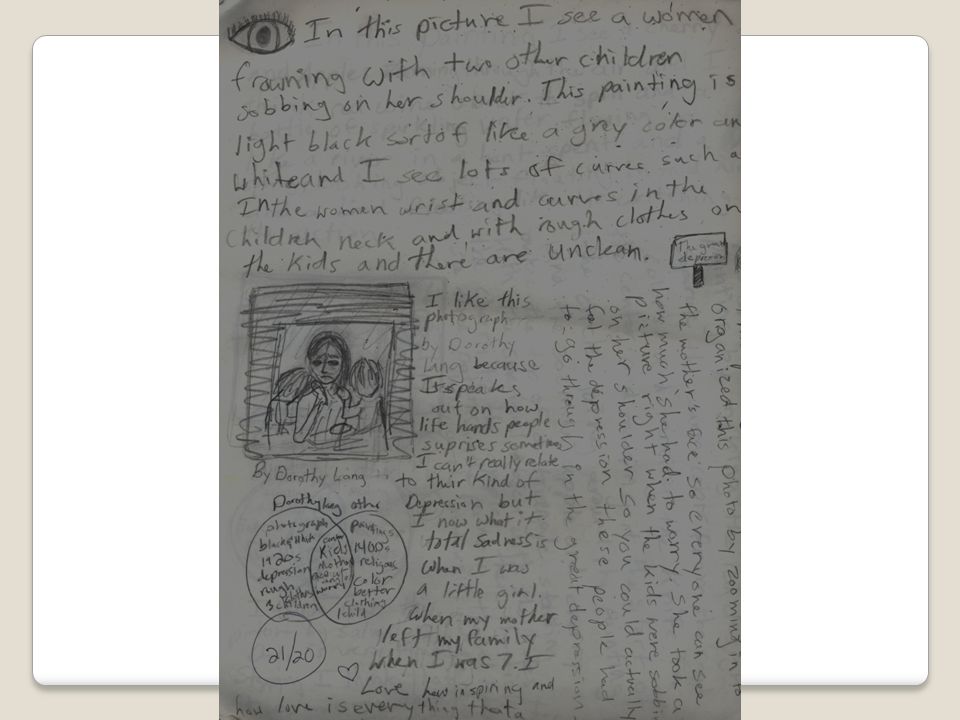 In this picture I see a women
frowning with two other children
sobbing on her shoulder. This painting is
light black sort of like a grey color an
white and I see lots of curves such a
In the women wrist and curves in the
children neck and with rough clothes on
the kids and there are unclean.
The great
depression
I like this
photograph
by Dorothy
Lang because
It speaks
out on how
life hands people
suprises sometimes
I can't really relate
to their kind of
Depression but
I now what it
total sadness is
when I was
a little girl.
when my mother
left my family
when I was 7. I
Love how inspiring and
how love is everything that a
By Dorothy Lang
Dorothy Lang other
photograph
black & white
1920s
depression
rough
clothes
3 children
Kids
mother
worry
paintings
1400's
religous
color
better
clothing
1 child
21/20
organized this photo by zooming in to
the mother's face so everyone can see
how much she had to worry. She took a
picture right when the kids were sobbin
on her shoulder so you could actually
feel the depression these people had
to go through in the great depression